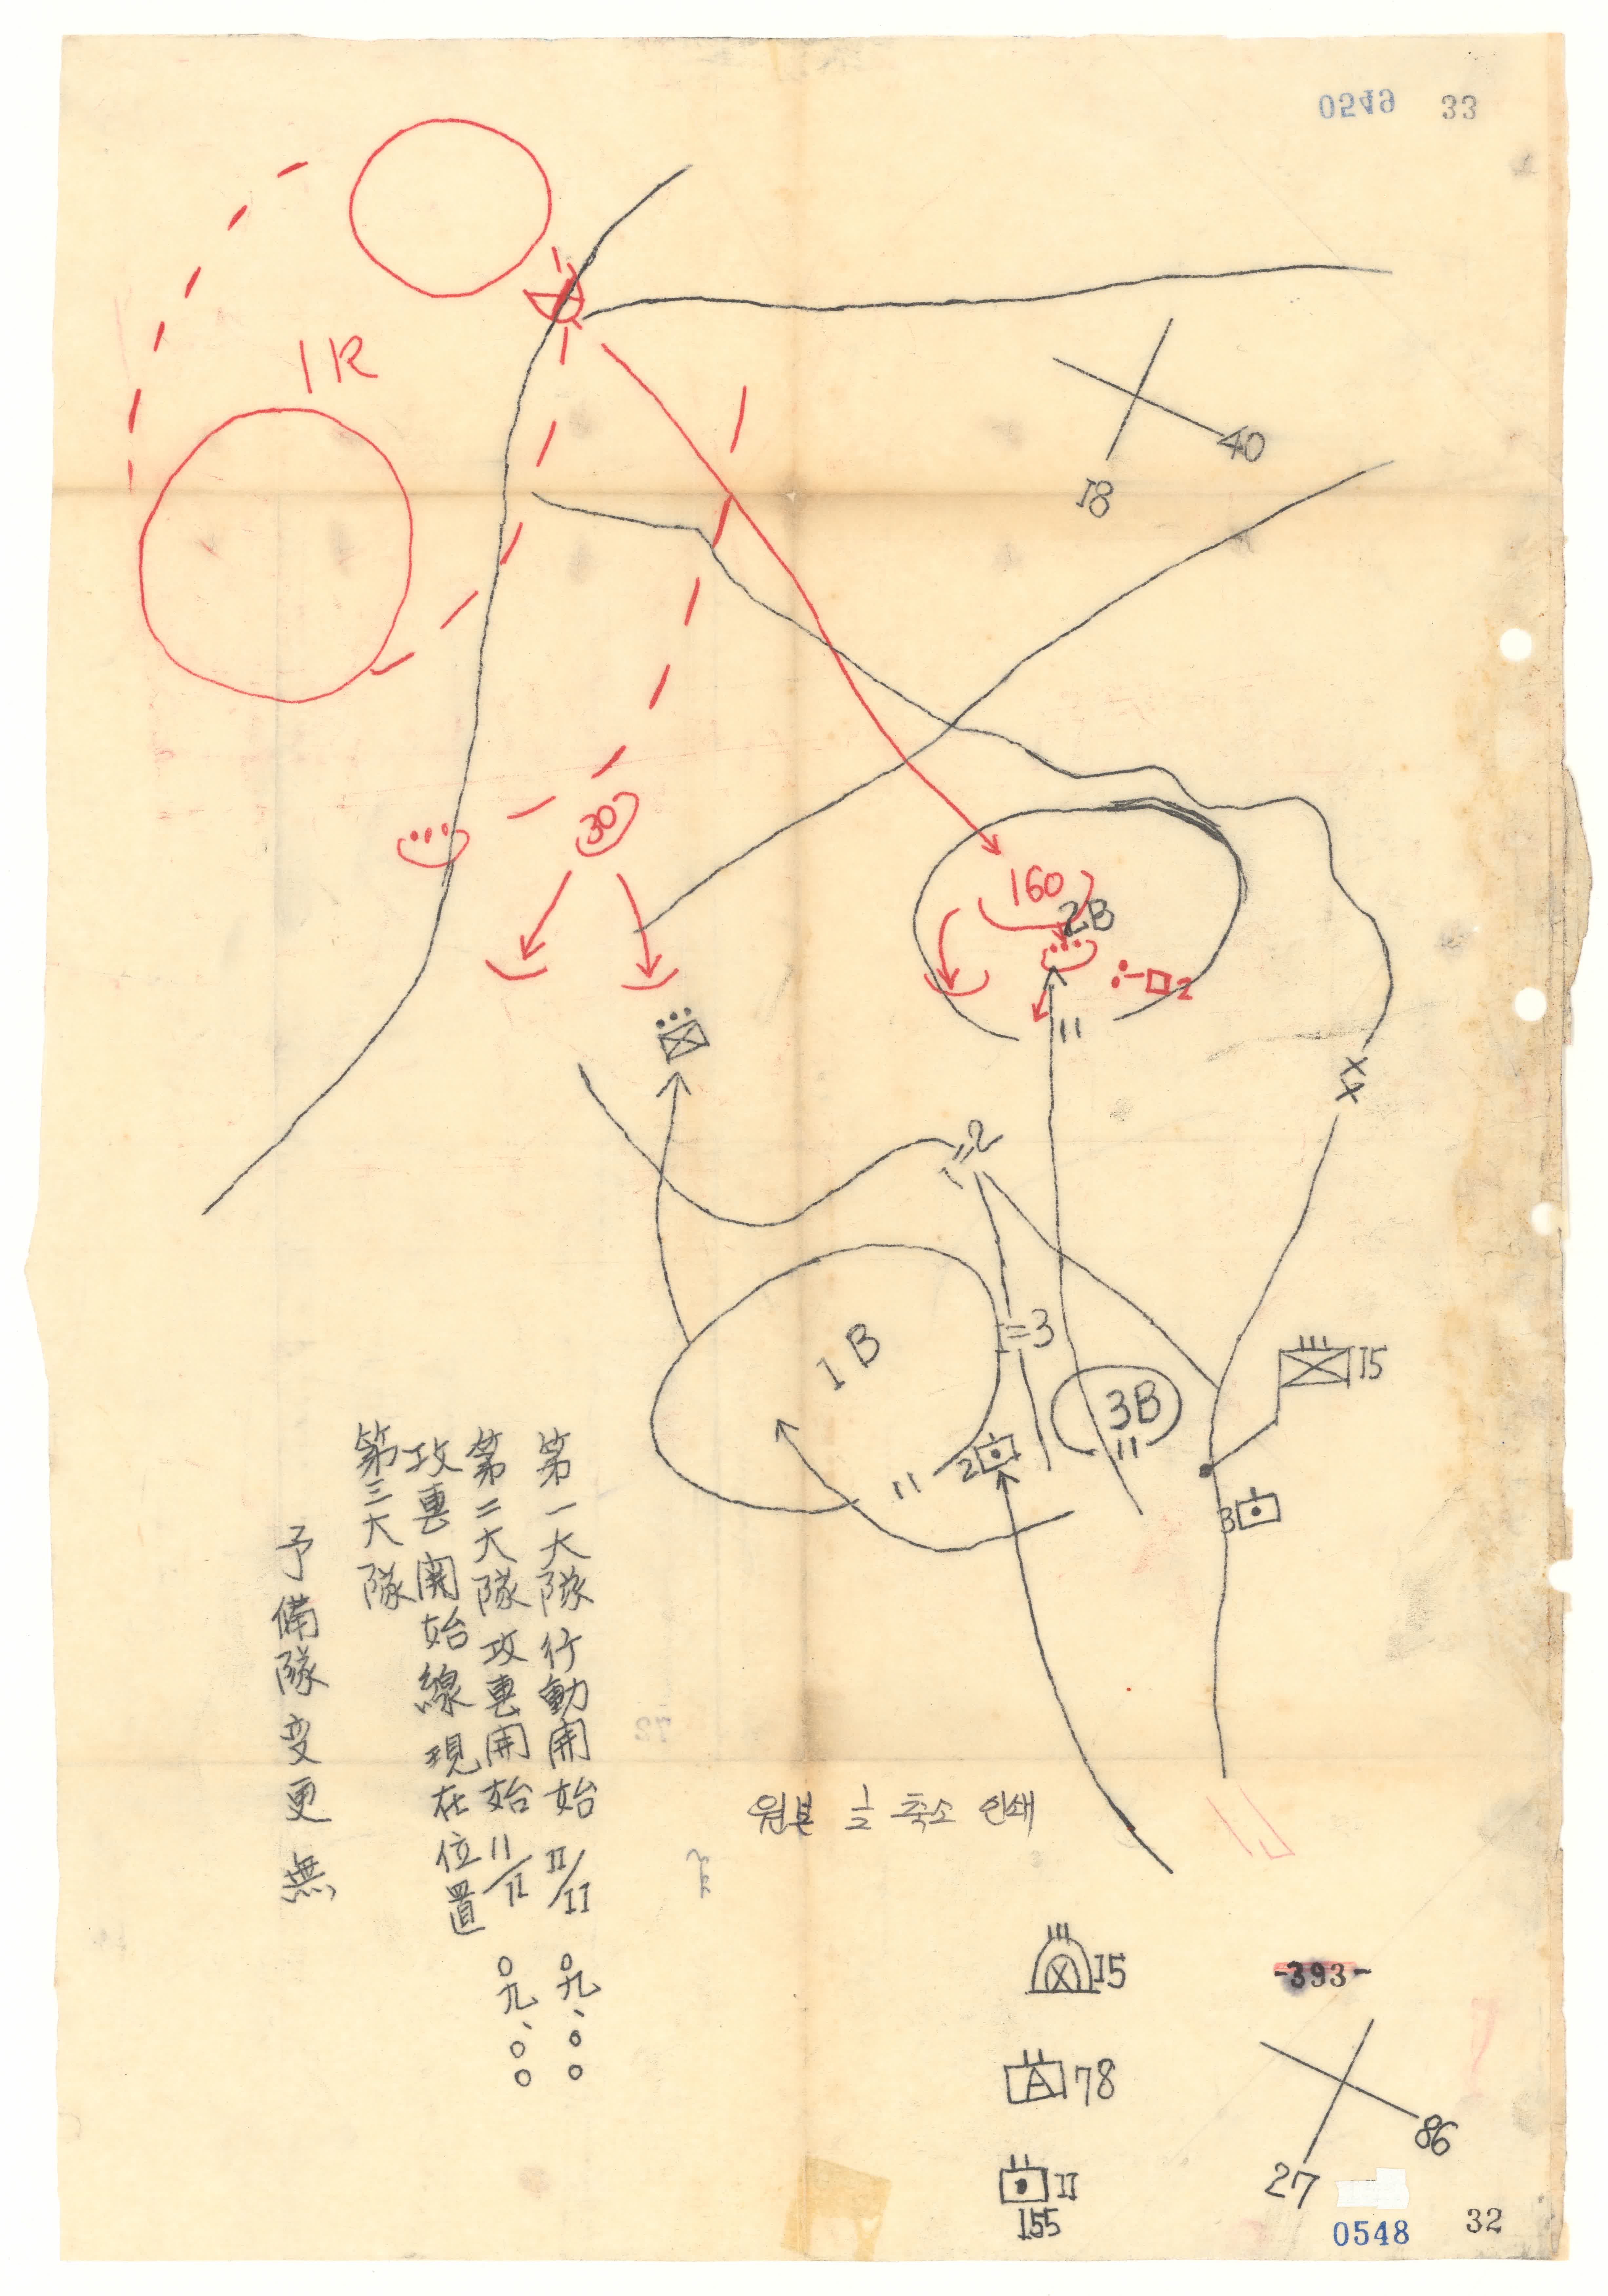 0549 33
1R
40
18
30
160
2B
2
11
=2
=3
1B
3B
11
11
2
15
3
第一大隊 行動開始 11/11 〇九、〇〇
第二大隊 攻撃開始 11/11 〇九、〇〇
攻撃開始線 現在位置
第三大隊
予備隊 変更 無
원본 1/2 축소 인쇄
15
-393-
A 78
86
27
11
155
0548 32